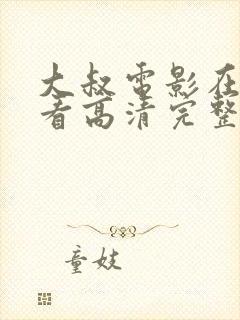 大叔电影在
看高清完整
童妓